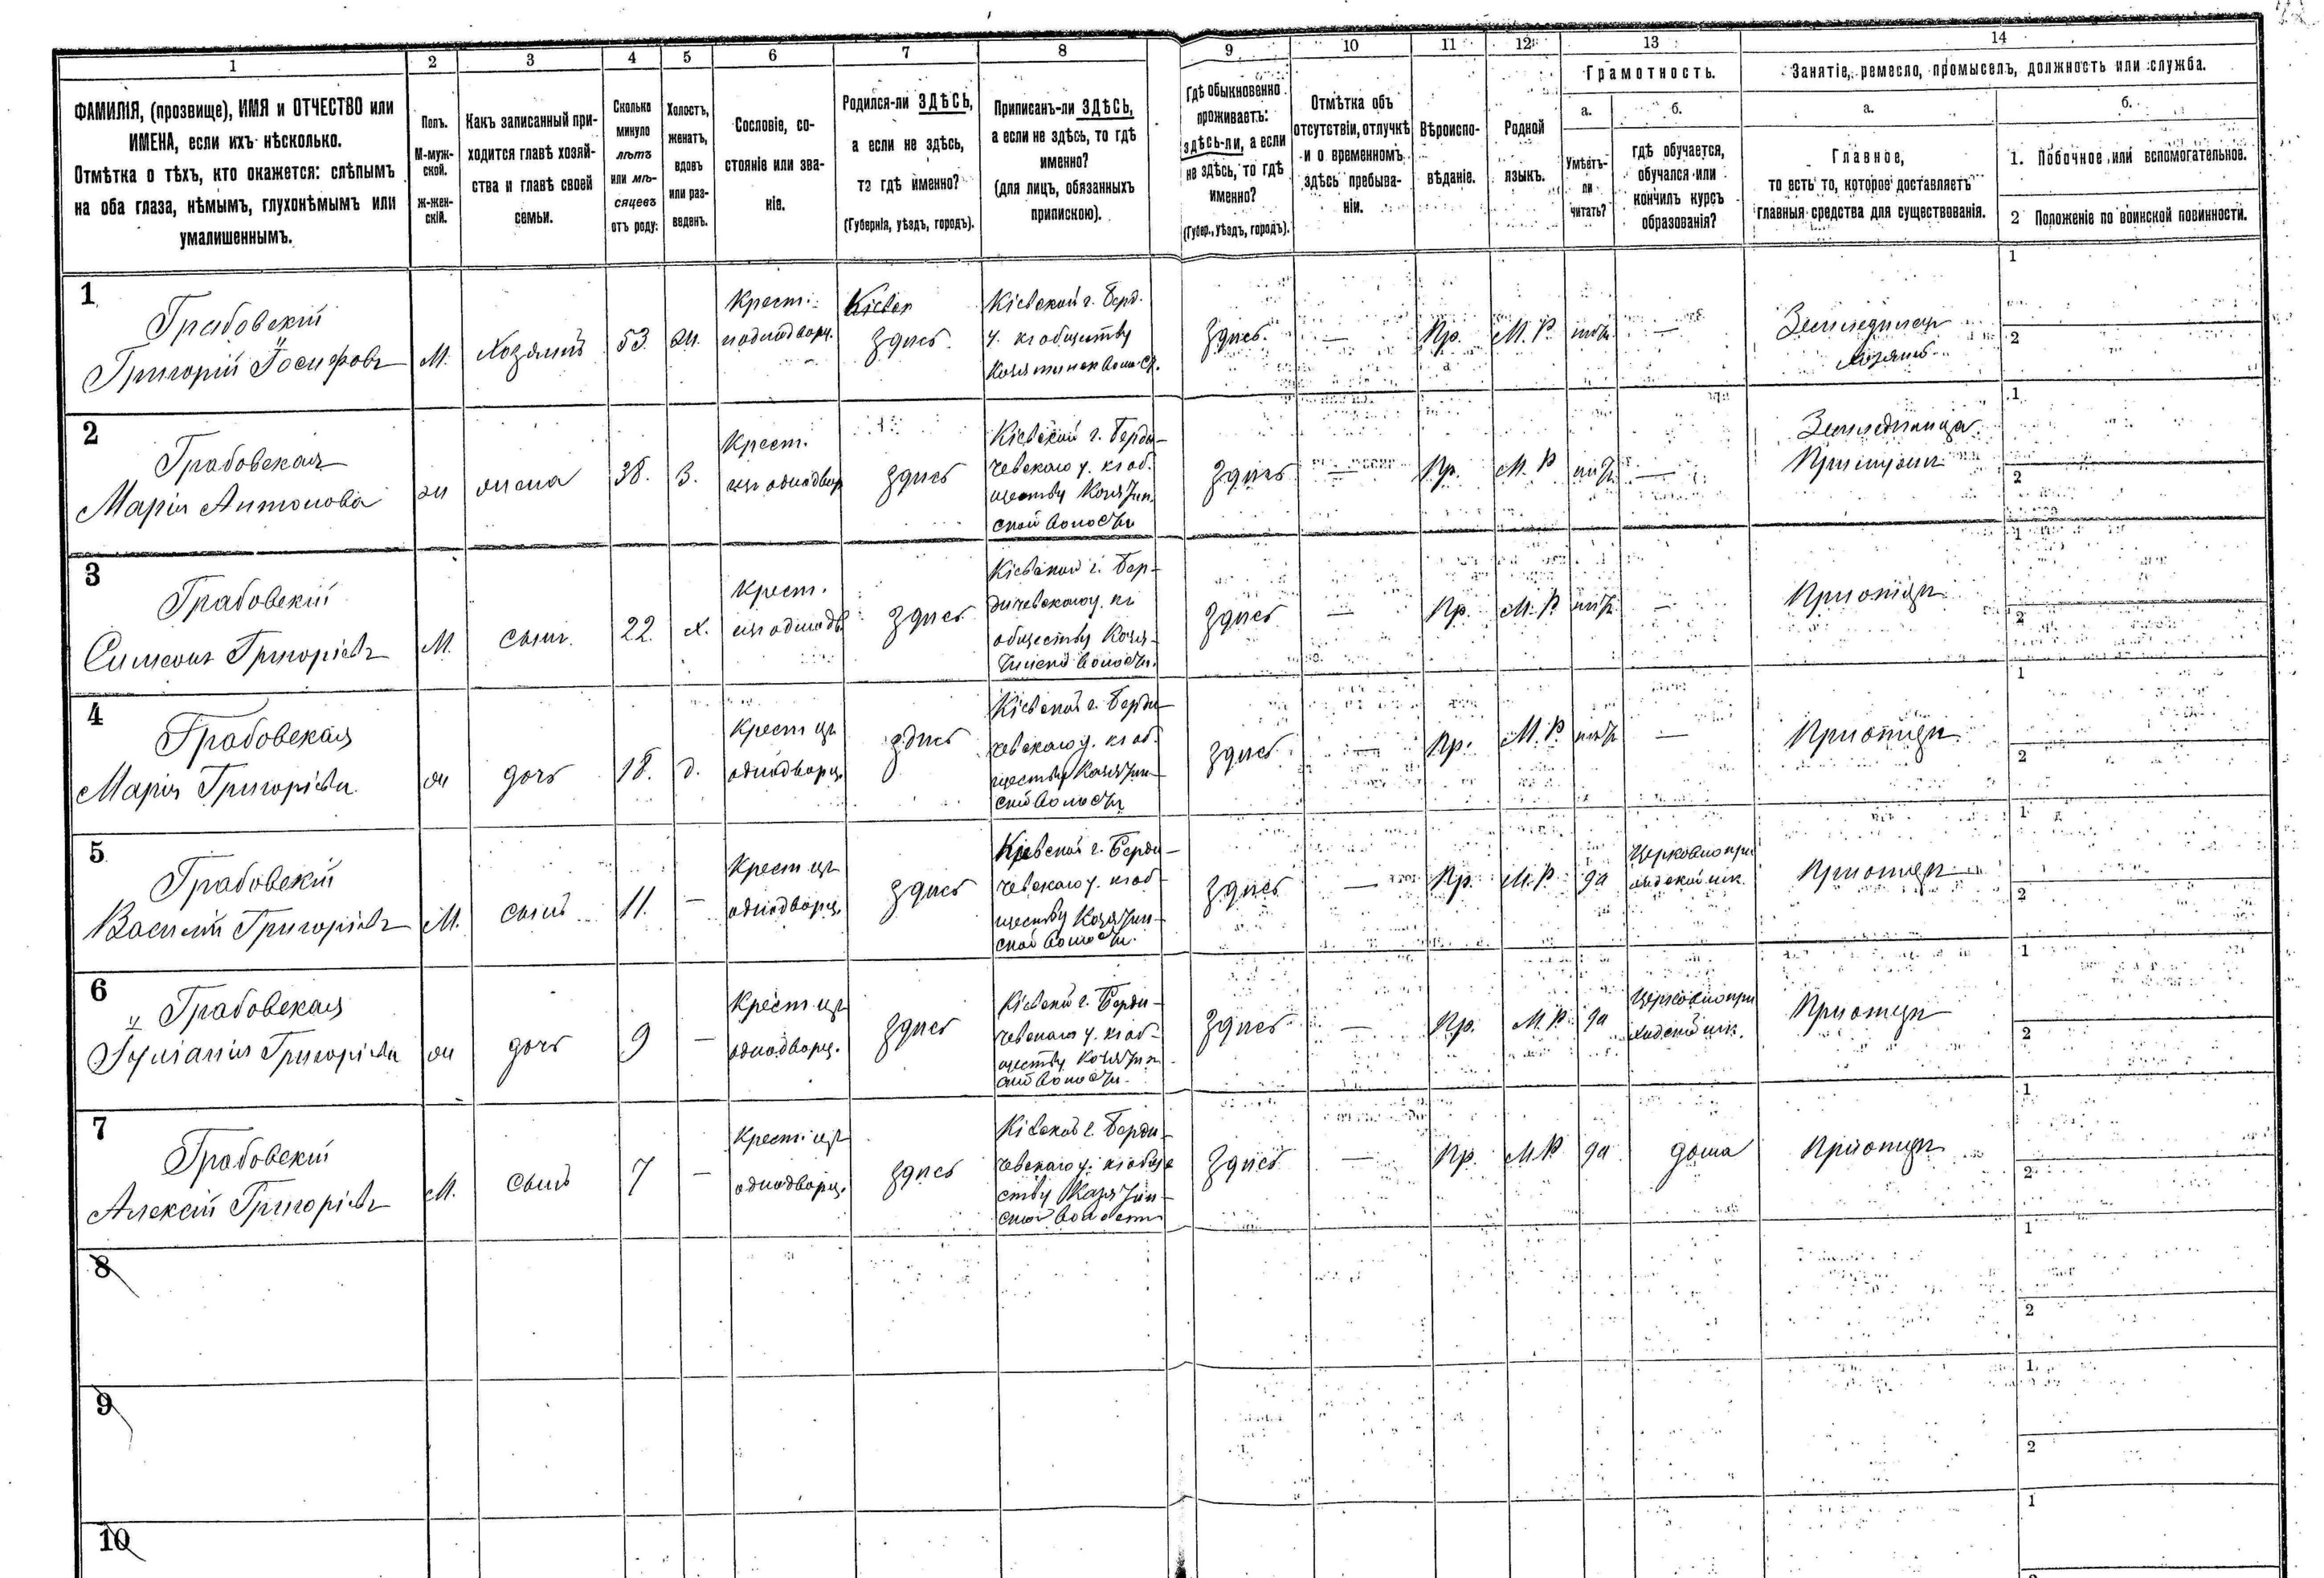 1 2 3 4 5 6 7 8 9 10 11 12 13 14
ФАМИЛІЯ, (прозвище), ИМЯ и ОТЧЕСТВО или
ИМЕНА, если ихъ нѣсколько.
Отмѣтка о тѣхъ, кто окажется: слѣпымъ
на оба глаза, нѣмымъ, глухонѣмымъ или
умалишеннымъ.
Полъ.
М-муж-
ской.
Ж-жен-
скій.
Какъ записанный при-
ходится главѣ хозяй-
ства и главѣ своей
семьи.
Сколько
минуло
лѣтъ
или мѣ-
сяцевъ
отъ роду.
Холостъ,
женатъ,
вдовъ
или раз-
веденъ.
Сословіе, со-
стояніе или зва-
ніе.
Родился-ли ЗДѢСЬ,
а если не здѣсь,
то гдѣ именно?
(Губернія, уѣздъ, городъ).
Приписанъ-ли ЗДѢСЬ,
а если не здѣсь, то гдѣ
именно?
(для лицъ, обязанныхъ
припискою).
Гдѣ обыкновенно
проживаетъ:
здѣсь-ли, а если
не здѣсь, то гдѣ
именно?
(Губер., уѣздъ, городъ).
Отмѣтка объ
отсутствіи, отлучкѣ
и о временномъ
здѣсь пребыва-
ніи.
Вѣроиспо-
вѣданіе.
Родной
языкъ.
Грамотность.
а.
Умѣетъ-
ли
читать?
б.
гдѣ обучается,
обучался или
кончилъ курсъ
образованія?
Занятіе, ремесло, промыселъ, должность или служба.
а.
Главное,
то есть то, которое доставляетъ
главныя средства для существованія.
б.
1. Побочное или вспомогательное.
2 Положеніе по воинской повинности.
1
Грабовскій
Григорій Іосифовъ
М.
Хозяинъ
53
ж.
Крест.
Кіевск
здпсь
Кіевской г. Берд.
у. къ обществу
здпсь.
—
Пр.
М. Р.
—
1
2
2
Грабовская
Марія Антонова
ж
жена
38.
З.
Крест.
изъ однодвор
здпсь
Кіевской г. Берди-
чевскаго у. къ об-
ществу Козятин-
ской волости
здпсь
—
Пр.
М. Р
—
1
2
3
Грабовскій
Симеонъ Григоріевъ
М.
сынъ.
22.
х.
Крест.
изъ однодв
здпсь
Кіевской г. Бер-
дичевскаго у. къ
обществу Козя-
тинск волости.
здпсь
—
Пр.
М. Р
—
При отцѣ
1
2
4
Грабовская
Марія Григоріева
ж
дочь
18.
д.
Крест изъ
однодворц.
здпсь
Кіевской г. Берди-
чевскаго у. къ об-
ществу Козятин-
ской волости
здпсь
—
Пр.
М. Р
—
При отцѣ
1
2
5
Грабовскій
Василій Григоріевъ
М.
сынъ
11.
—
Крест изъ
однодворц.
здпсь
Кіевской г. Берди-
чевскаго у. къ об-
ществу Козятин-
ской волости.
здпсь
—
Пр.
М. Р.
да
Церковнопри
ходской шк.
При отцѣ
1
2
6
Грабовская
Григоріева
ж
дочь
9
—
Крест изъ
однодворц.
здпсь
Кіевской г. Берди-
чевскаго у. къ об-
ществу Козятин
ской волости.
здпсь
—
Пр.
М. Р.
да
Церковнопри
ходской шк.
При отцѣ
1
2
7
Грабовскій
Алексѣй Григоріевъ
М.
сынъ
7
—
Крест. изъ
однодворц.
здпсь
Кіевской г. Берди-
чевскаго у. къ обще
ству Казятин-
ской волости
здпсь
—
Пр.
М Р
да
дома
При отцѣ
1
2
8
1
2
9
1
2
10
1